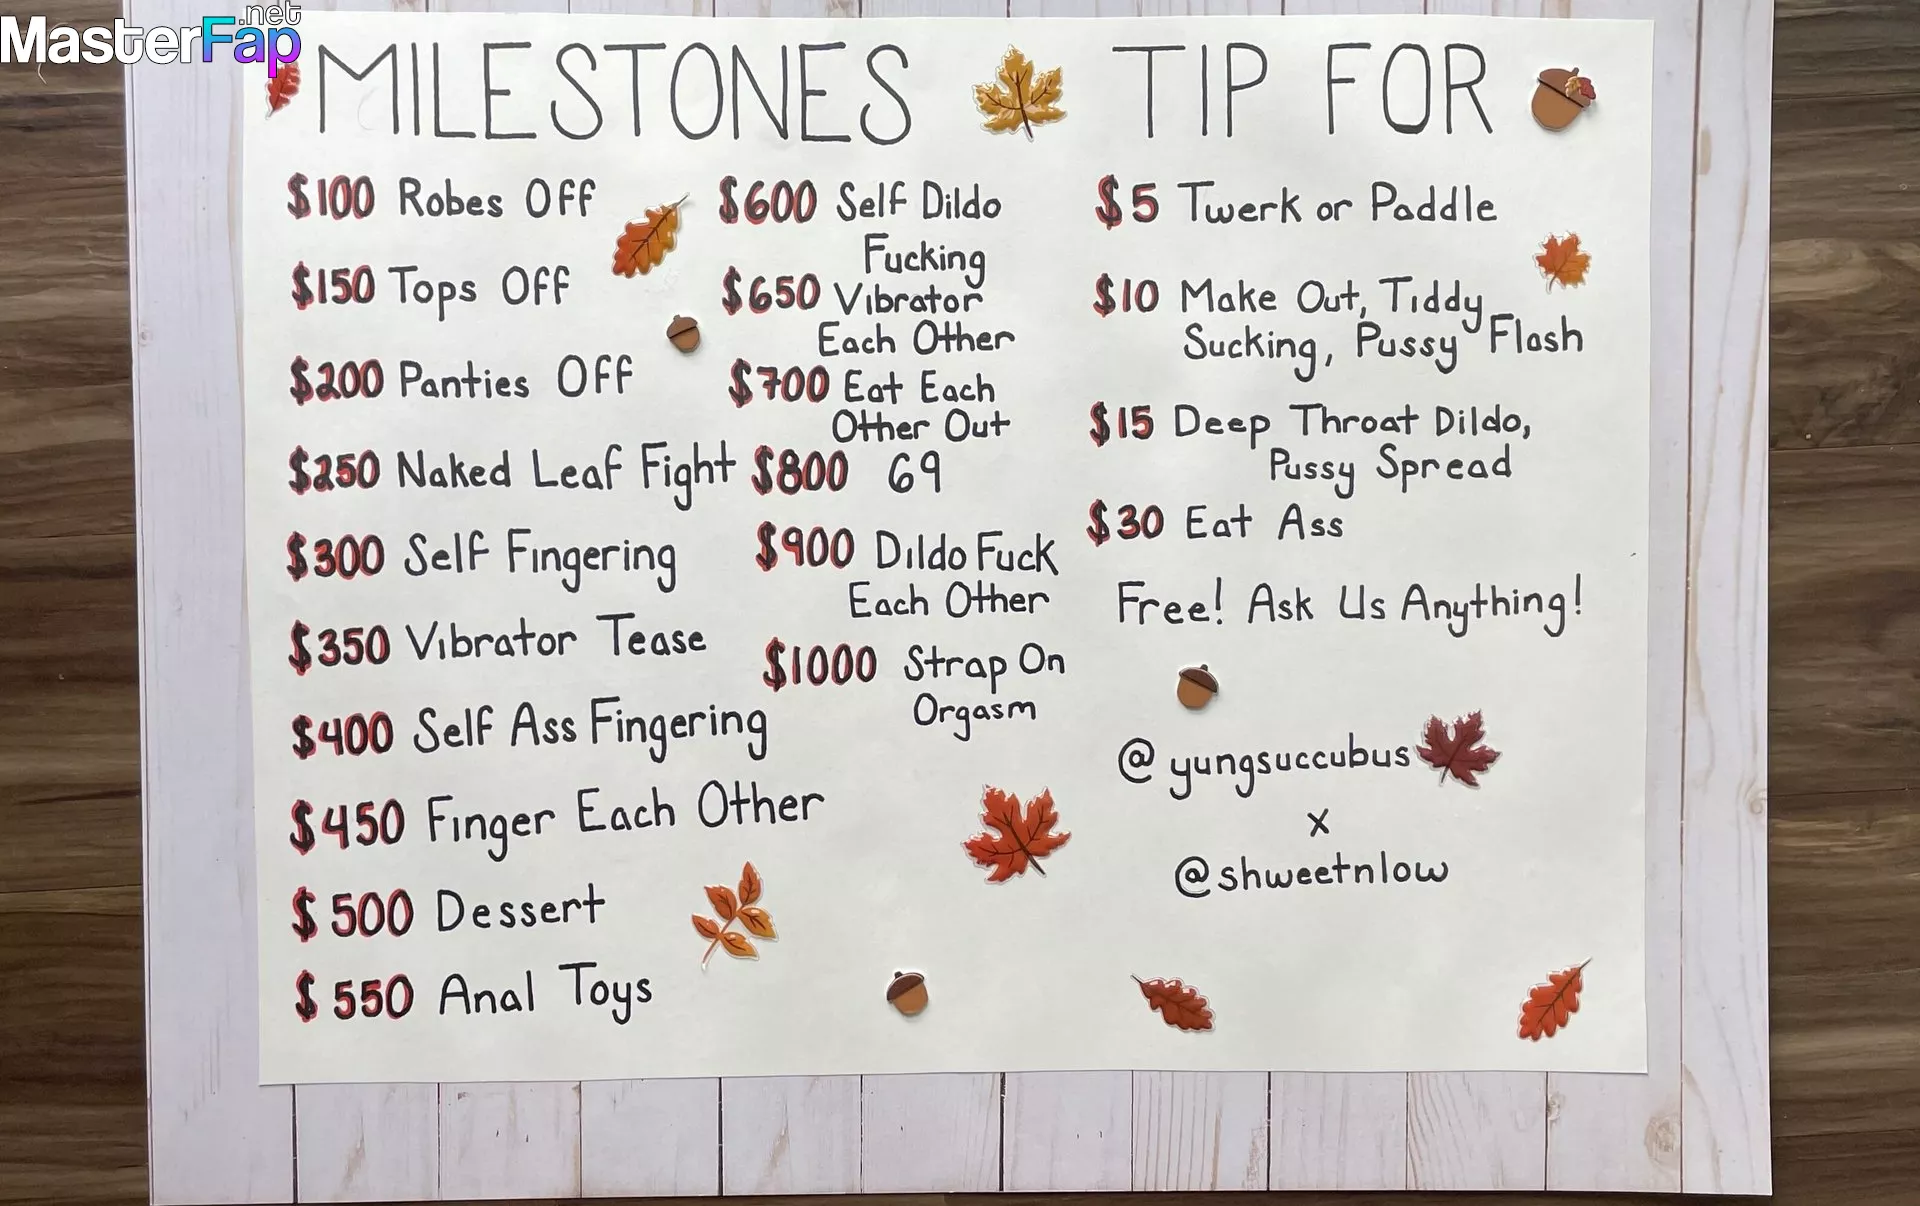 MasterFap.net
MILESTONES
$100 Robes Off
$150 Tops Off
$200 Panties Off
$250 Naked Leaf Fight
$300 Self Fingering
$350 Vibrator Tease
$400 Self Ass Fingering
$450 Finger Each Other
$500 Dessert
$550 Anal Toys
$600 Self Dildo
Fucking
$650 Vibrator
Each Other
$700 Eat Each
Other Out
$800 69
$900 Dildo Fuck
Each Other
$1000 Strap On
Orgasm
TIP FOR
$5 Twerk or Paddle
$10 Make Out, Tiddy
Sucking, Pussy Flash
$15 Deep Throat Dildo,
Pussy Spread
$30 Eat Ass
Free! Ask Us Anything!
@yungsuccubus
x
@shweetnlow